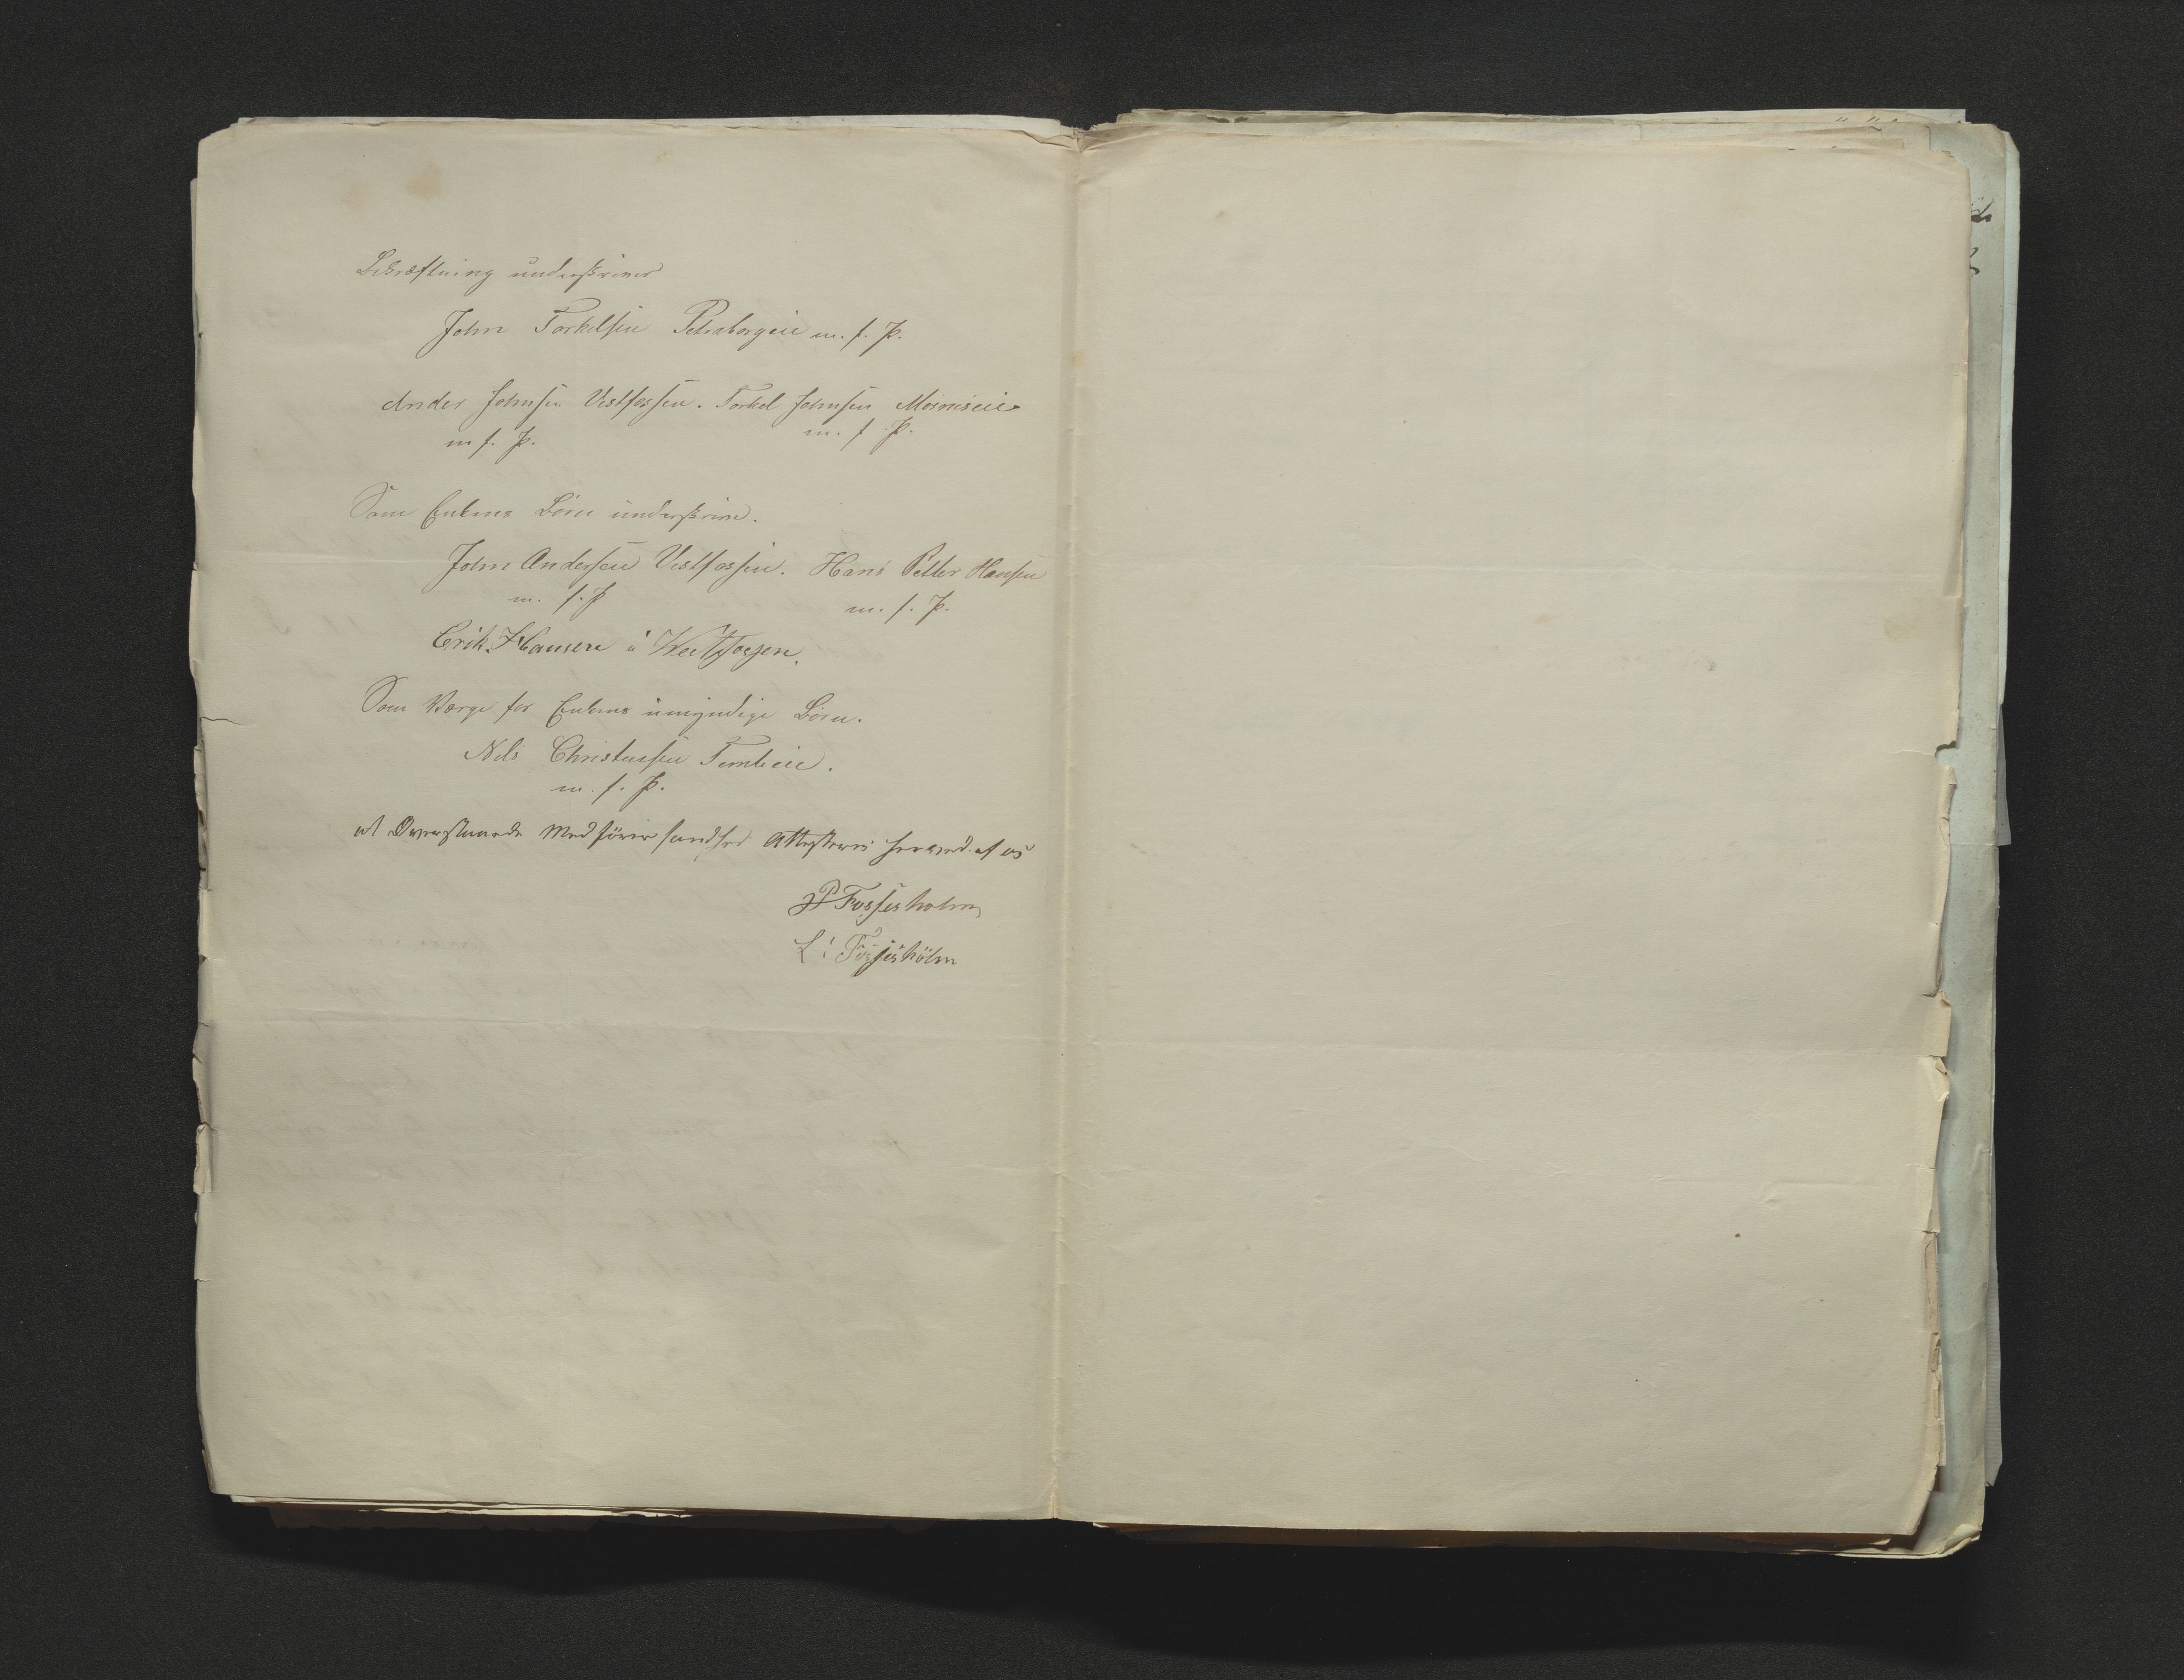 Bekræftning underskriver
John Torkelsen Petersborgeie m. f. P.
Anders Johnsen Vestfossen. Torkel Johnsen Moeneseie
m f. P. m. f. P.
Som Enkens Børn underskrive.
John Andersen Vestfossen. Hans Petter Hansen
m. f. P m. f. P.
Erik. Hansen i Vestfossen.
Som Værge for Enkens umyndige Børn.
Nils Christensen Tembeie.
m. f. P.
at Overstaaende Medfører sandhed Attesteres herved af os
P Fossesholm
L: Fossesholm